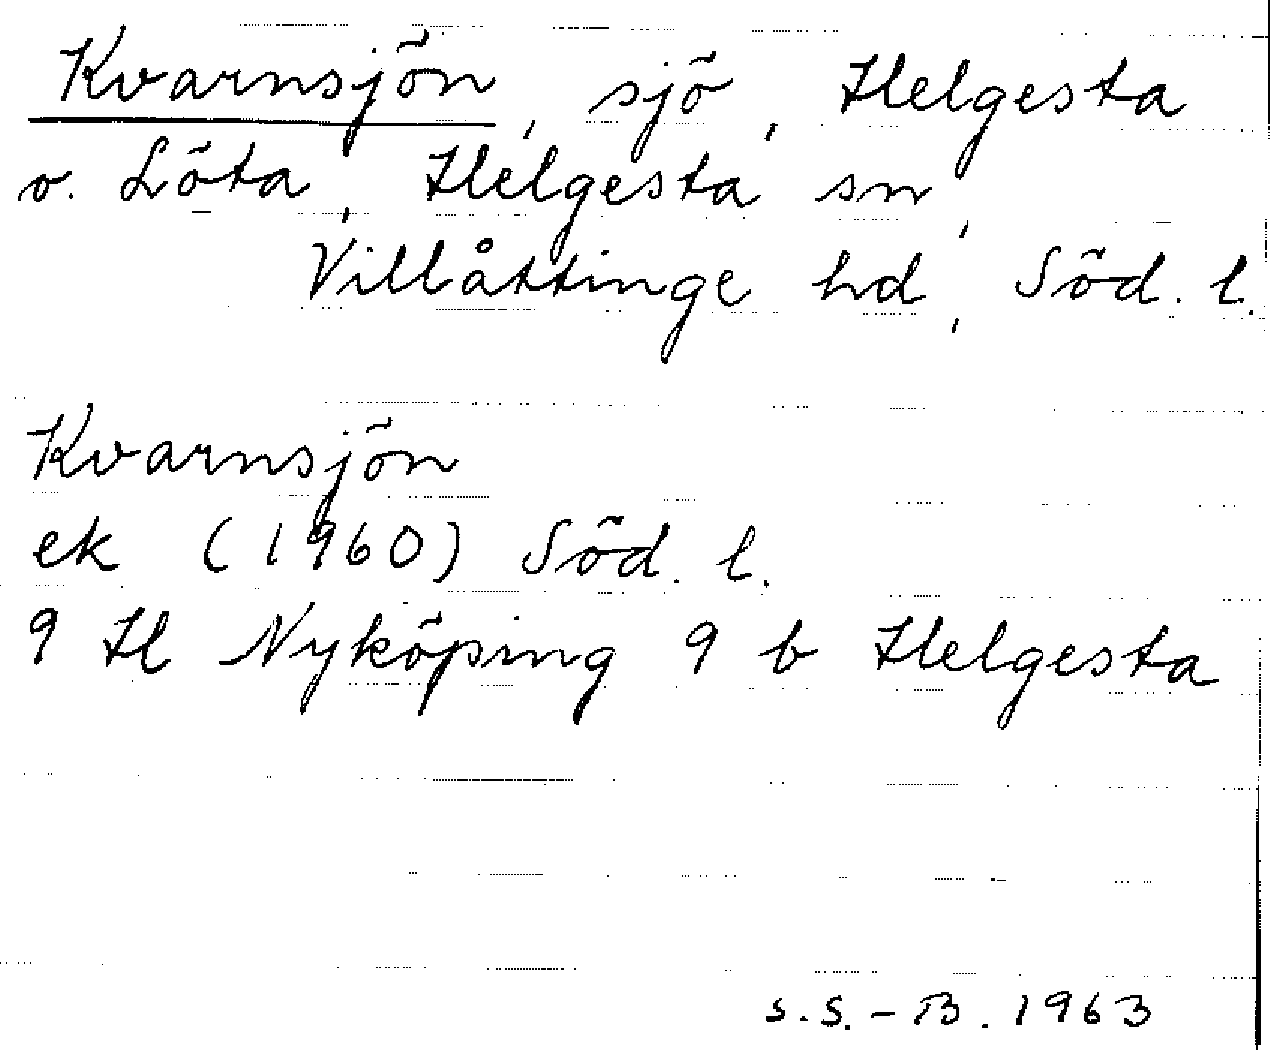 Kvarnsjön, sjö, Helgesta
o. Löta, Helgesta sn,
Villåttinge hd, Söd. l.
Kvarnsjön
ek (1960) Söd. l.
9 H Nyköping 9 b Helgesta
S.S.-B. 1963